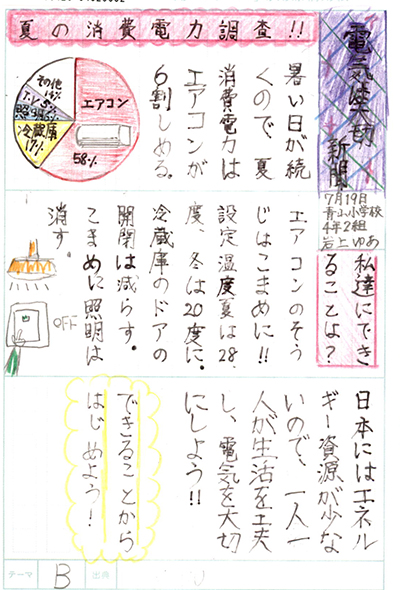 電気は大切
新聞
7月19日
青山小学校
4年2組
岩上ゆあ
夏の消費電力調査!!
暑い日が続
くので、夏
消費電力は
エアコンが
6割しめる。
エアコン
58%
冷蔵庫
17%
T.V 5%
その他
14%
私達にでき
ることは?
エアコンのそう
じはこまめに!!
設定温度夏は28
度、冬は20度に。
冷蔵庫のドアの
開閉は減らす。
こまめに照明は
消す。
OFF
日本にはエネル
ギー資源が少な
いので、一人一
人が生活を工夫
し、電気を大切
にしよう!!
できることから
はじめよう!
テーマ B